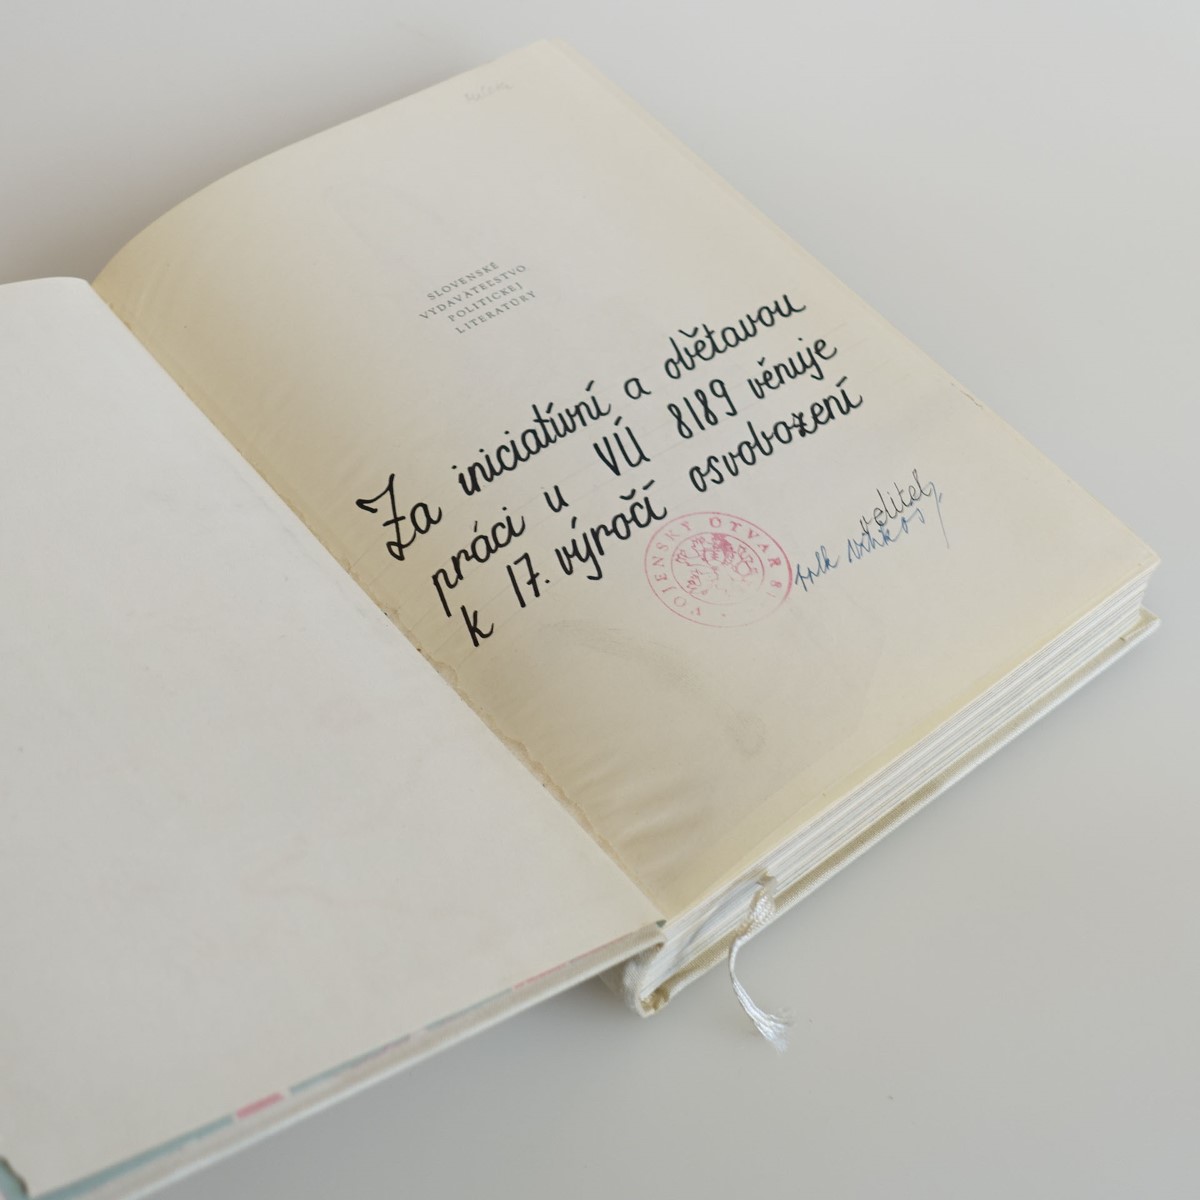 SLOVENSKÉ
VYDAVATEĽSTVO
POLITICKEJ
LITERATÚRY
Za iniciativní a obětavou
práci u VÚ 8189 věnuje
k 17. výročí osvobození
VOJENSKÝ ÚTVAR 81
velitel